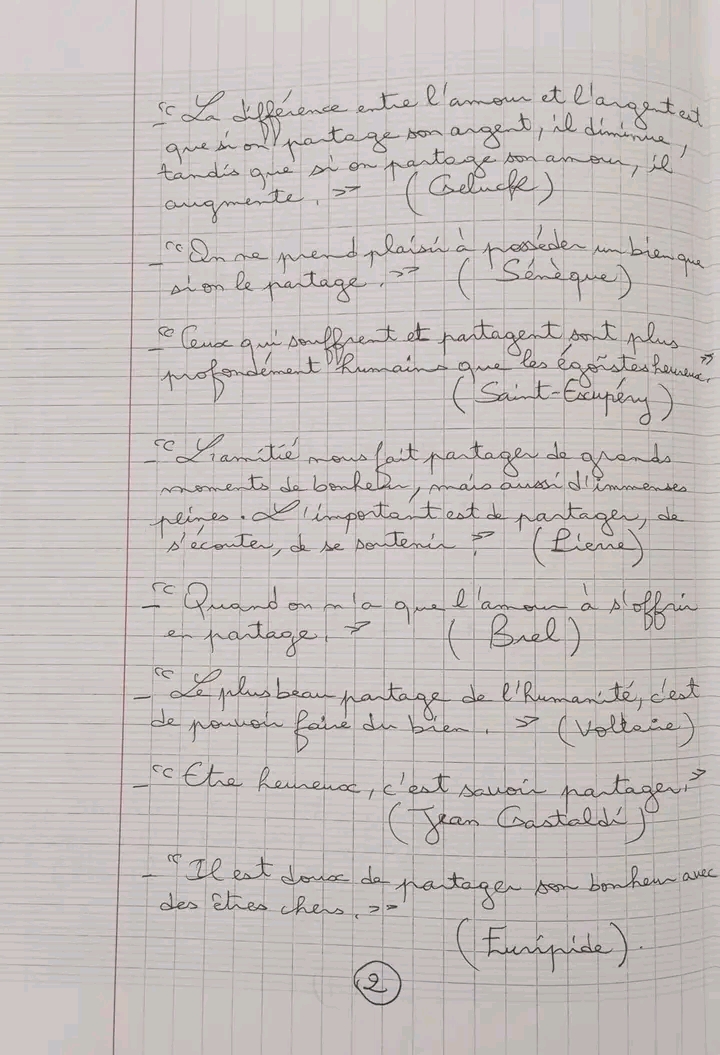 - "La différence entre l'amour et l'argent est
que si on partage son argent, il diminue,
tandis que si on partage son amour, il
augmente. » (Geluck)
- "On ne prend plaisir à posséder un bien que
si on le partage. » (Sénèque)
- "Ceux qui souffrent et partagent sont plus
profondément humains que les égoïstes heureux. »
(Saint-Exupéry)
- "L'amitié nous fait partager de grands
moments de bonheur, mais aussi d'immenses
peines. L'important est de partager, de
s'écouter, de se soutenir » (Pierre)
- "Quand on n'a que l'amour à s'offrir
en partage. » (Brel)
- "Le plus beau partage de l'humanité, c'est
de pouvoir faire du bien. » (Voltaire)
- "Etre heureux, c'est savoir partager. »
(Jean Gastaldi)
- "Il est doux de partager son bonheur avec
des êtres chers. »
(Euripide).
2